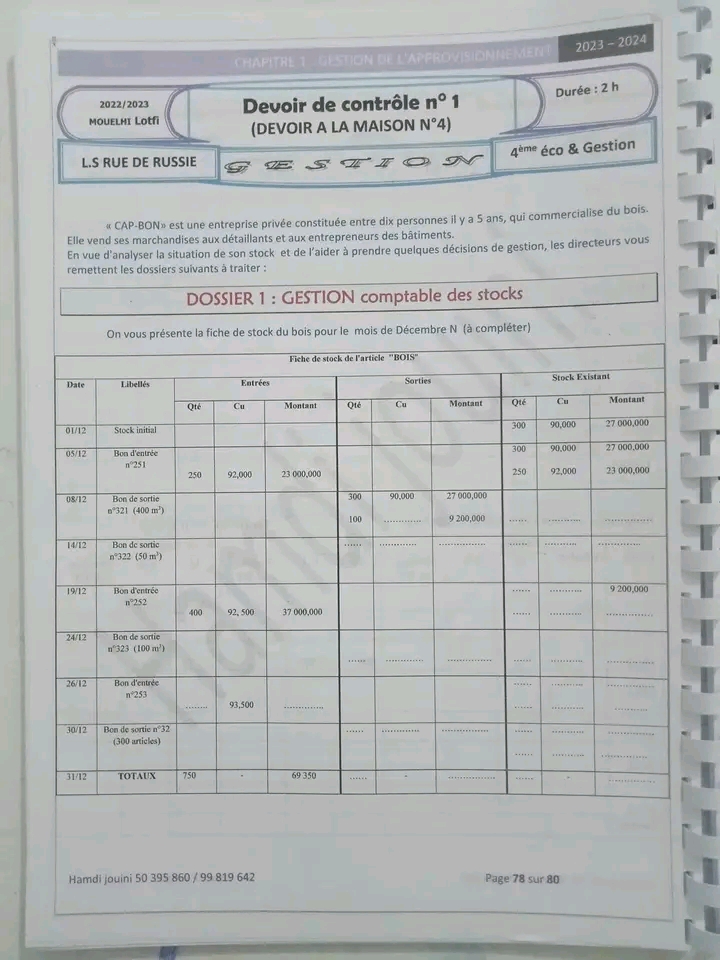 CHAPITRE 1 : GESTION DE L'APPROVISIONNEMENT
2023 – 2024
2022/2023
MOUELHI Lotfi
Devoir de contrôle n° 1
(DEVOIR A LA MAISON N°4)
Durée : 2 h
L.S RUE DE RUSSIE
GESTION
4ème éco & Gestion
« CAP-BON» est une entreprise privée constituée entre dix personnes il y a 5 ans, qui commercialise du bois.
Elle vend ses marchandises aux détaillants et aux entrepreneurs des bâtiments.
En vue d'analyser la situation de son stock et de l'aider à prendre quelques décisions de gestion, les directeurs vous
remettent les dossiers suivants à traiter :
DOSSIER 1 : GESTION comptable des stocks
On vous présente la fiche de stock du bois pour le mois de Décembre N (à compléter)
Fiche de stock de l'article "BOIS"
Date Libellés Entrées Sorties Stock Existant
Qté Cu Montant Qté Cu Montant Qté Cu Montant
01/12 Stock initial 300 90,000 27 000,000
05/12 Bon d'entrée 300 90,000 27 000,000
n°251 250 92,000 23 000,000 250 92,000 23 000,000
08/12 Bon de sortie 300 90,000 27 000,000
n°321 (400 m³) 100 ............ 9 200,000 ...... .......... ...............
14/12 Bon de sortie ...... ............ ............... ...... .......... ...............
n°322 (50 m³)
19/12 Bon d'entrée ...... .......... 9 200,000
n°252 400 92, 500 37 000,000 ...... .......... ...............
24/12 Bon de sortie ...... .......... ...............
n°323 (100 m³) ...... ............... ...... .......... ...............
26/12 Bon d'entrée ...... .......... ...............
n°253 ........ 93,500 ............. ...... .......... ...............
30/12 Bon de sortie n°32 ...... ............ ............... ...... .......... ...............
(300 articles) ...... .......... ...............
31/12 TOTAUX 750 - 69 350 ...... - ............... ...... - ...............
Hamdi jouini 50 395 860 / 99 819 642
Page 78 sur 80